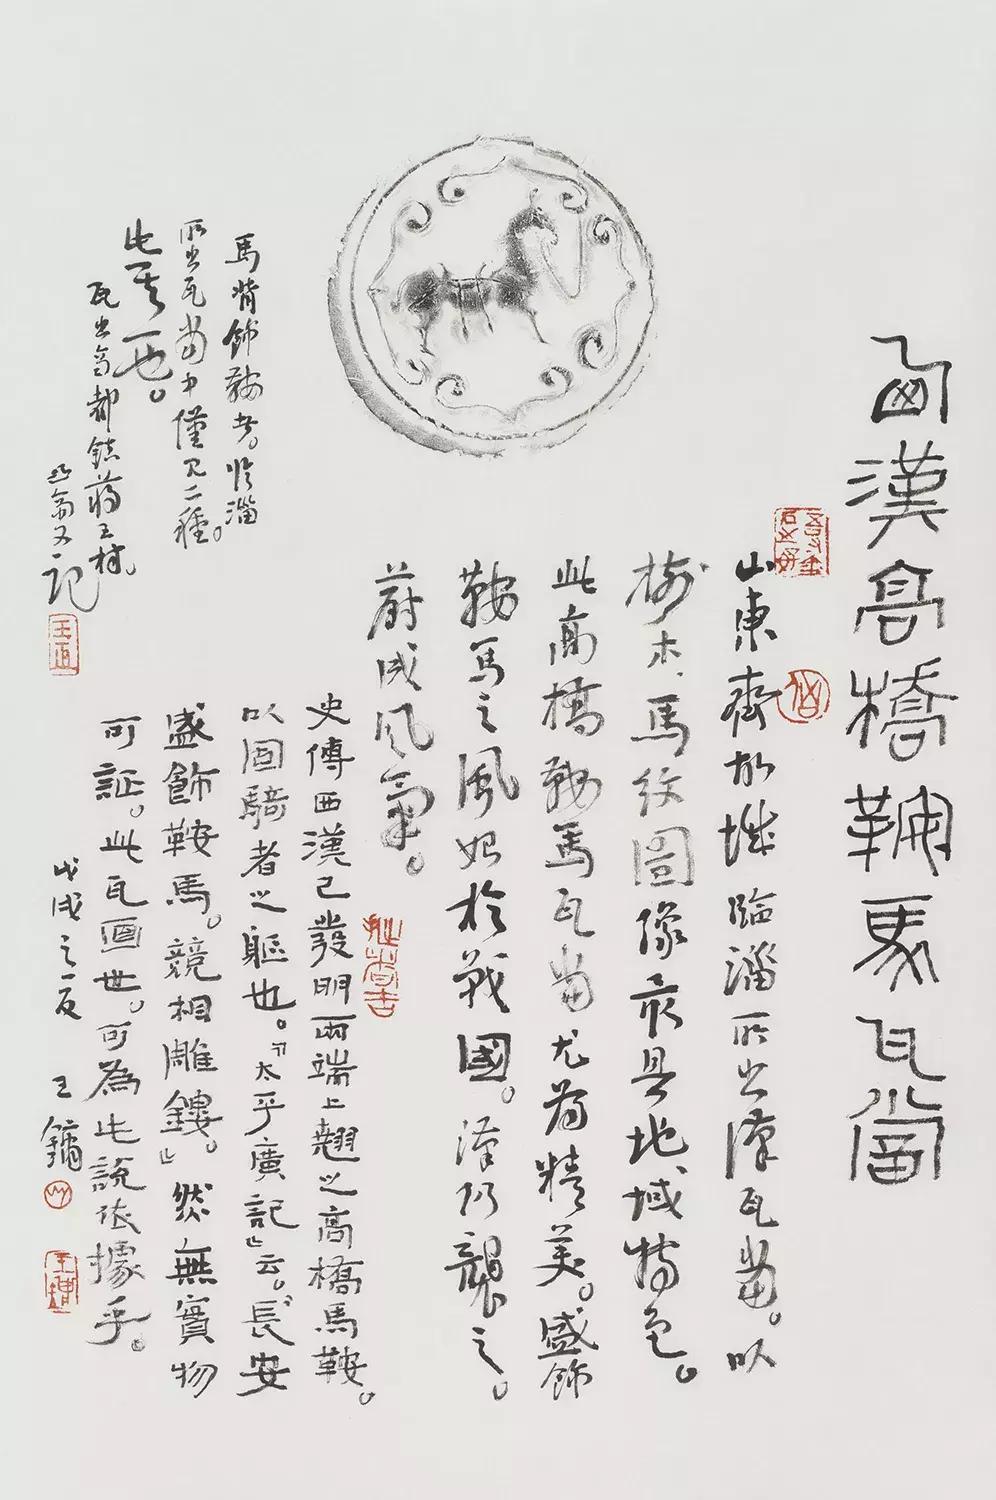 西漢高橋鞍馬瓦當
山東齊故城臨淄所出漢瓦當。以
樹木、馬紋圖像最具地域特色。
此高橋鞍馬瓦當尤為精美。盛飾
鞍馬之風始於戰國。漢仍襲之。
蔚成風氣。
史傳西漢已發明兩端上翹之高橋馬鞍。
以固騎者之軀也。『太平廣記』云。“長安
盛飾鞍馬。競相雕鏤。』然無實物
可証。此瓦面世。可為此說依據乎。
戊戌之夏 王鏞
馬背飾鞍者。臨淄
所出瓦當中僅見二種。
此其一也。
瓦出高都鎮蔣王村。
又記